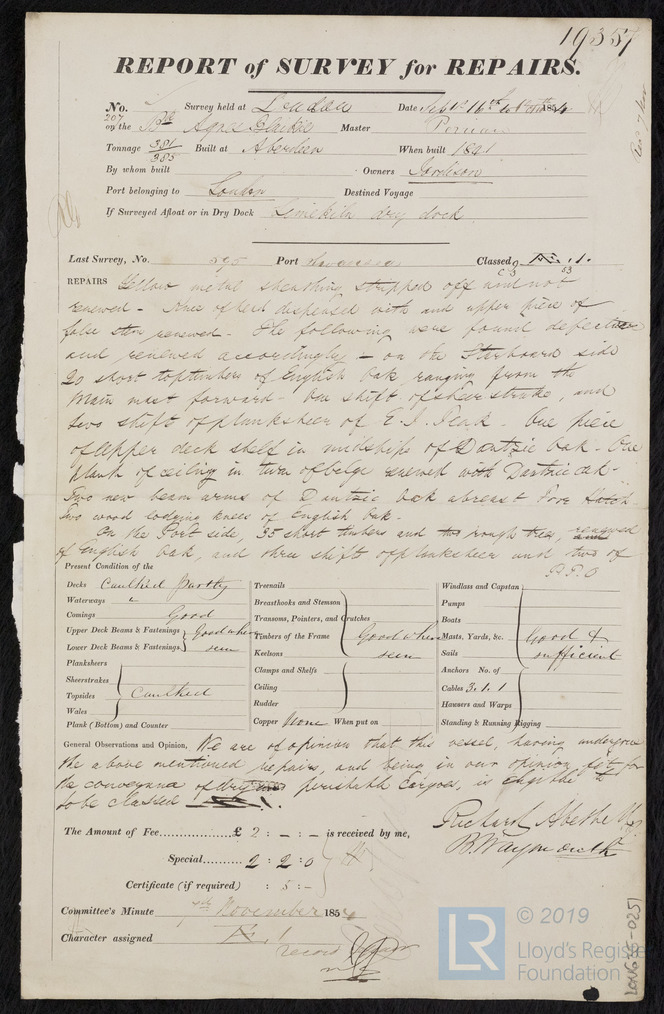 19357
REPORT of SURVEY for REPAIRS.
No. 207 Survey held at London Date Sept 16th 1854
on the Bk Agnes Blaikie Master
Tonnage 381/385 Built at Aberdeen When built 1841
By whom built Owners
Port belonging to London Destined Voyage
If Surveyed Afloat or in Dry Dock Limekiln dry dock
Last Survey, No. 595 Port Swansea Classed Æ.1.
53
REPAIRS Yellow metal sheathing stripped off and not
renewed - Knee of head dispensed with and upper piece of
false stem renewed - The following were found defective
and renewed accordingly - on the Starboard side
20 short toptimbers of English Oak ranging from the
Main mast forward - One shift of sheerstrake, and
two shift of planksheer of E. I. Teak - One piece
of upper deck shelf in midships of Dantzic Oak - One
plank of ceiling in turn of belge renewed with Dantzic oak -
Two new beam arms of Dantzic Oak abreast Fore Hatch
Two wood lodging knees of English Oak -
On the Port side, 35 short timbers and rough tree,
of English Oak, and three shift of planksheer and two of
P.T.O
Present Condition of the
Decks Caulked partly
Waterways "
Comings Good
Upper Deck Beams & Fastenings Good where
Lower Deck Beams & Fastenings seen
Planksheers
Sheerstrakes
Topsides Caulked
Wales
Plank (Bottom) and Counter
Treenails
Breasthooks and Stemson
Transoms, Pointers, and Crutches
Timbers of the Frame Good where
Keelsons seen
Clamps and Shelfs
Ceiling
Rudder
Copper None When put on
Windlass and Capstan
Pumps
Boats
Masts, Yards, &c. Good &
Sails sufficient
Anchors No. of
Cables 3.1.1
Hausers and Warps
Standing & Running Rigging
General Observations and Opinion, We are of opinion that this vessel, having undergone
the above mentioned repairs, and being in our opinion fit for
the conveyance of dry and perishable Cargoes, is eligible
to be classed
The Amount of Fee £ 2 : - : - is received by me,
Special 2 : 2 : 0
Certificate (if required) : 5 : -
Richard Abethell
B. Waymouth
Committee's Minute 7th November 1854
Character assigned Æ.1
record
© 2019
LR
Lloyd's Register
Foundation
LON655-0251